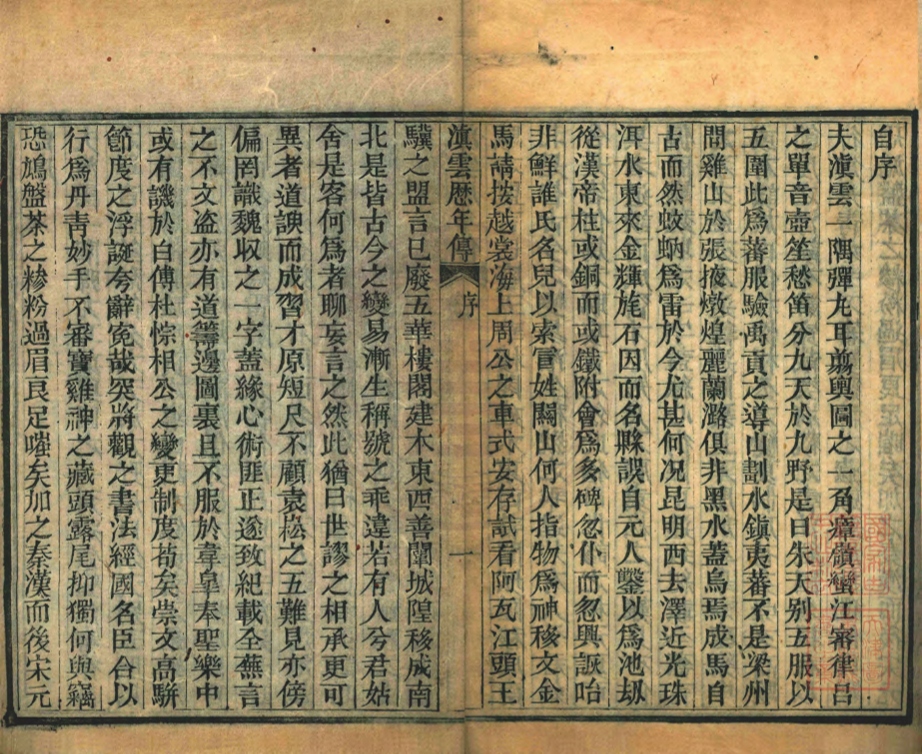 自序
夫滇雲一隅彈丸耳翦輿圖之一角瘴嶺蠻江審律呂
之單音壺笙愁笛分九天於九野是曰朱天别五服以
五圍此爲蕃服驗禹貢之導山劃水鎭夷蕃不是梁州
問雞山於張掖燉煌麗蘭潞俱非黑水蓋烏焉成馬自
古而然蚊蚋爲雷於今尤甚何况昆明西去澤近光珠
洱水東來金輝旄石因而名縣誤自元人鑿以爲池刼
從漢帝柱或銅而或鐵附會爲多碑忽仆而忽興詼咍
非鮮誰氏名兒以索冒姓關山何人指物爲神移文金
馬請按越裳海上周公之車式安存試看阿瓦江頭王
滇雲歷年傳 序 一
驥之盟言已廢五華樓閣建木東西善闡城隍移成南
北是皆古今之變易漸生稱號之乖違若有人兮君姑
舍是客何爲者聊妄言之然此猶曰世謬之相承更可
異者道諛而成習才原短尺不顧袁崧之五難見亦傍
偏罔識魏收之一字蓋緣心術匪正遂致紀載全蕪言
之不文盗亦有道籌邊圖裏且不服於韋皐奉聖樂中
或有譏於白傅杜悰相公之變更制度苟矣崇文高騈
節度之浮誕夸辭寃哉突將觀之書法經國名臣合以
行爲丹靑妙手不審寶雞神之藏頭露尾抑獨何與竊
恐鳩盤茶之糝粉過眉良足嗤矣加之秦漢而後宋元